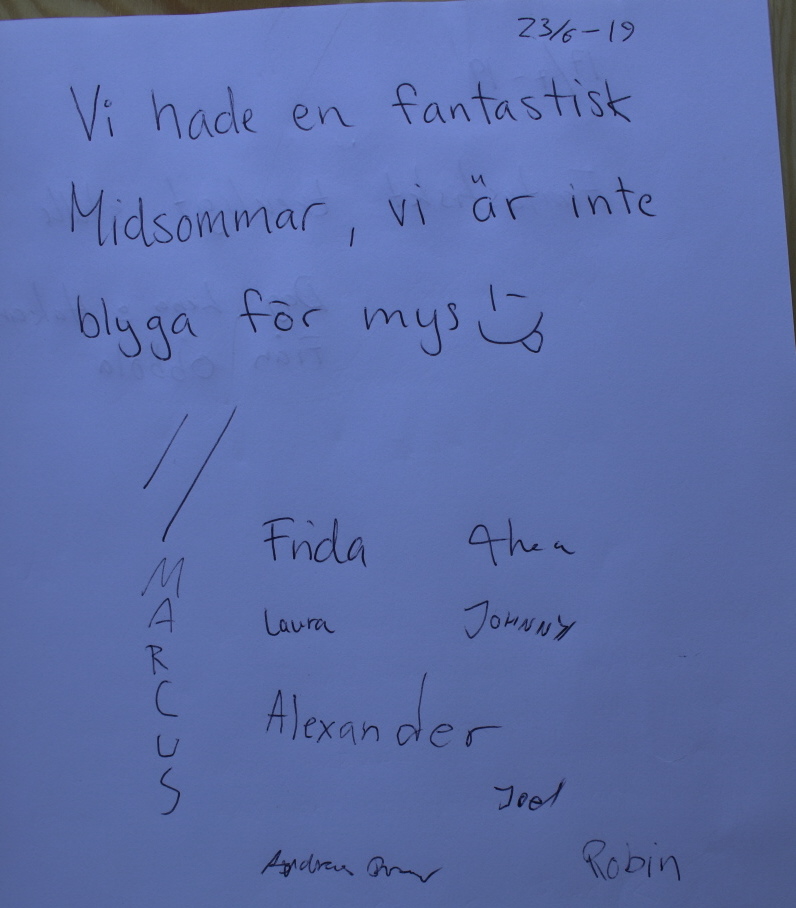 23/6-19
Vi hade en fantastisk
Midsommar, vi är inte
blyga för mys
//
MARCUS
Frida Thea
Laura JOHNNY
Alexander
Joel
Robin